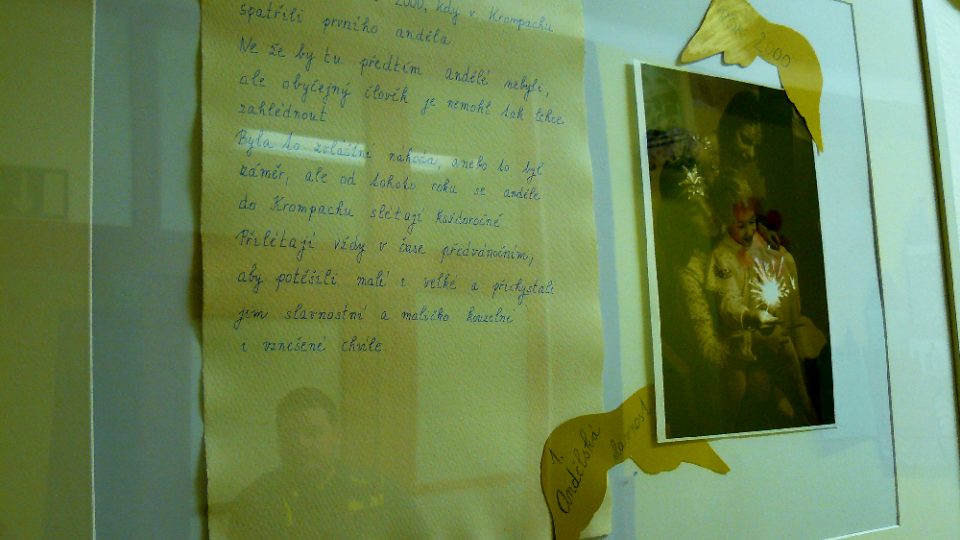 2000, kdy v Krompachu
spatřili prvního anděla
Ne že by tu předtím andělé nebyli,
ale obyčejný člověk je nemohl tak lehce
zahlédnout
Byla to zvláštní náhoda, anebo to byl
záměr, ale od tohoto roku se andělé
do Krompachu slétají každoročně
Přilétají vždy v čase předvánočním,
aby potěšili malé i velké a přichystali
jim slavnostní a maličko kouzelné
i vznešené chvíle
Rok 2000
1.
Andělská
slavnost